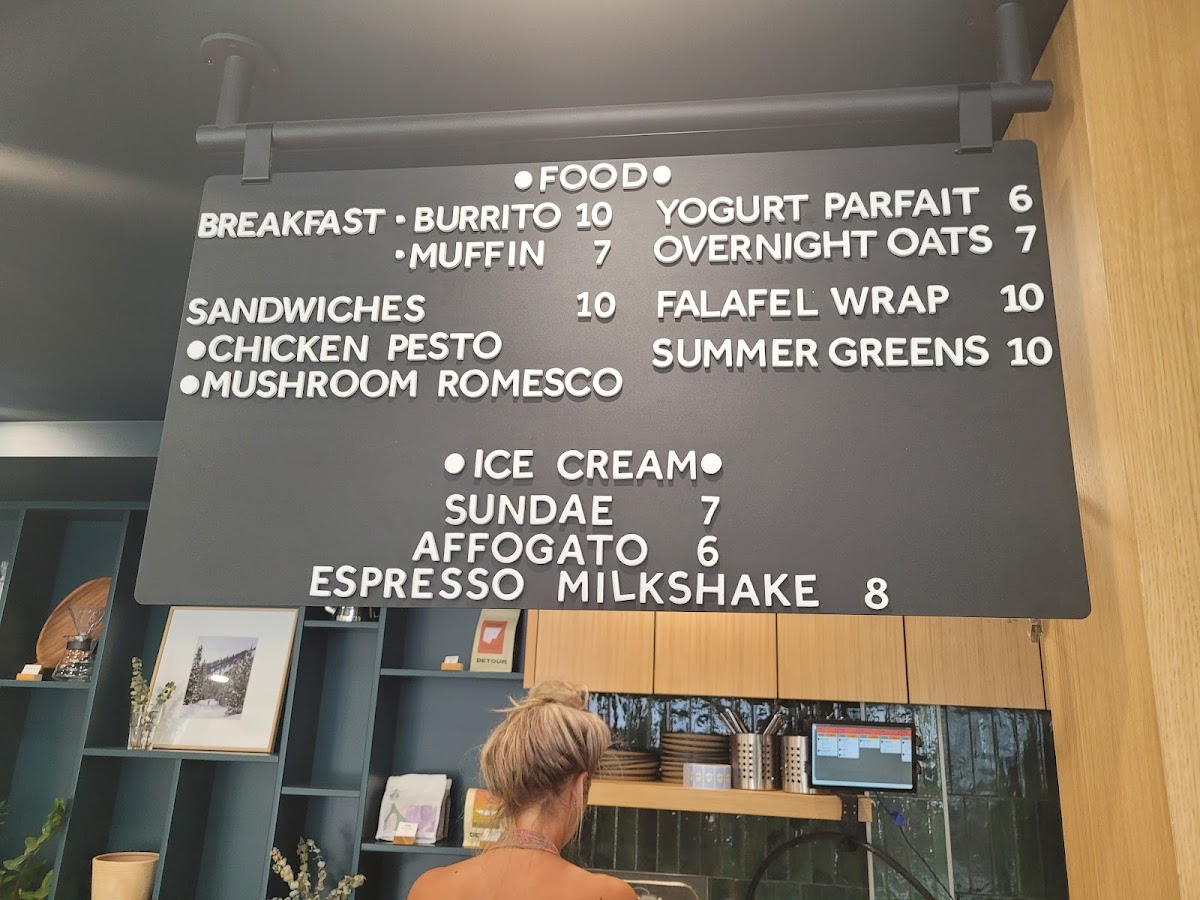 •FOOD•
BREAKFAST •BURRITO 10
•MUFFIN 7
SANDWICHES 10
•CHICKEN PESTO
•MUSHROOM ROMESCO
YOGURT PARFAIT 6
OVERNIGHT OATS 7
FALAFEL WRAP 10
SUMMER GREENS 10
•ICE CREAM•
SUNDAE 7
AFFOGATO 6
ESPRESSO MILKSHAKE 8
DETOUR